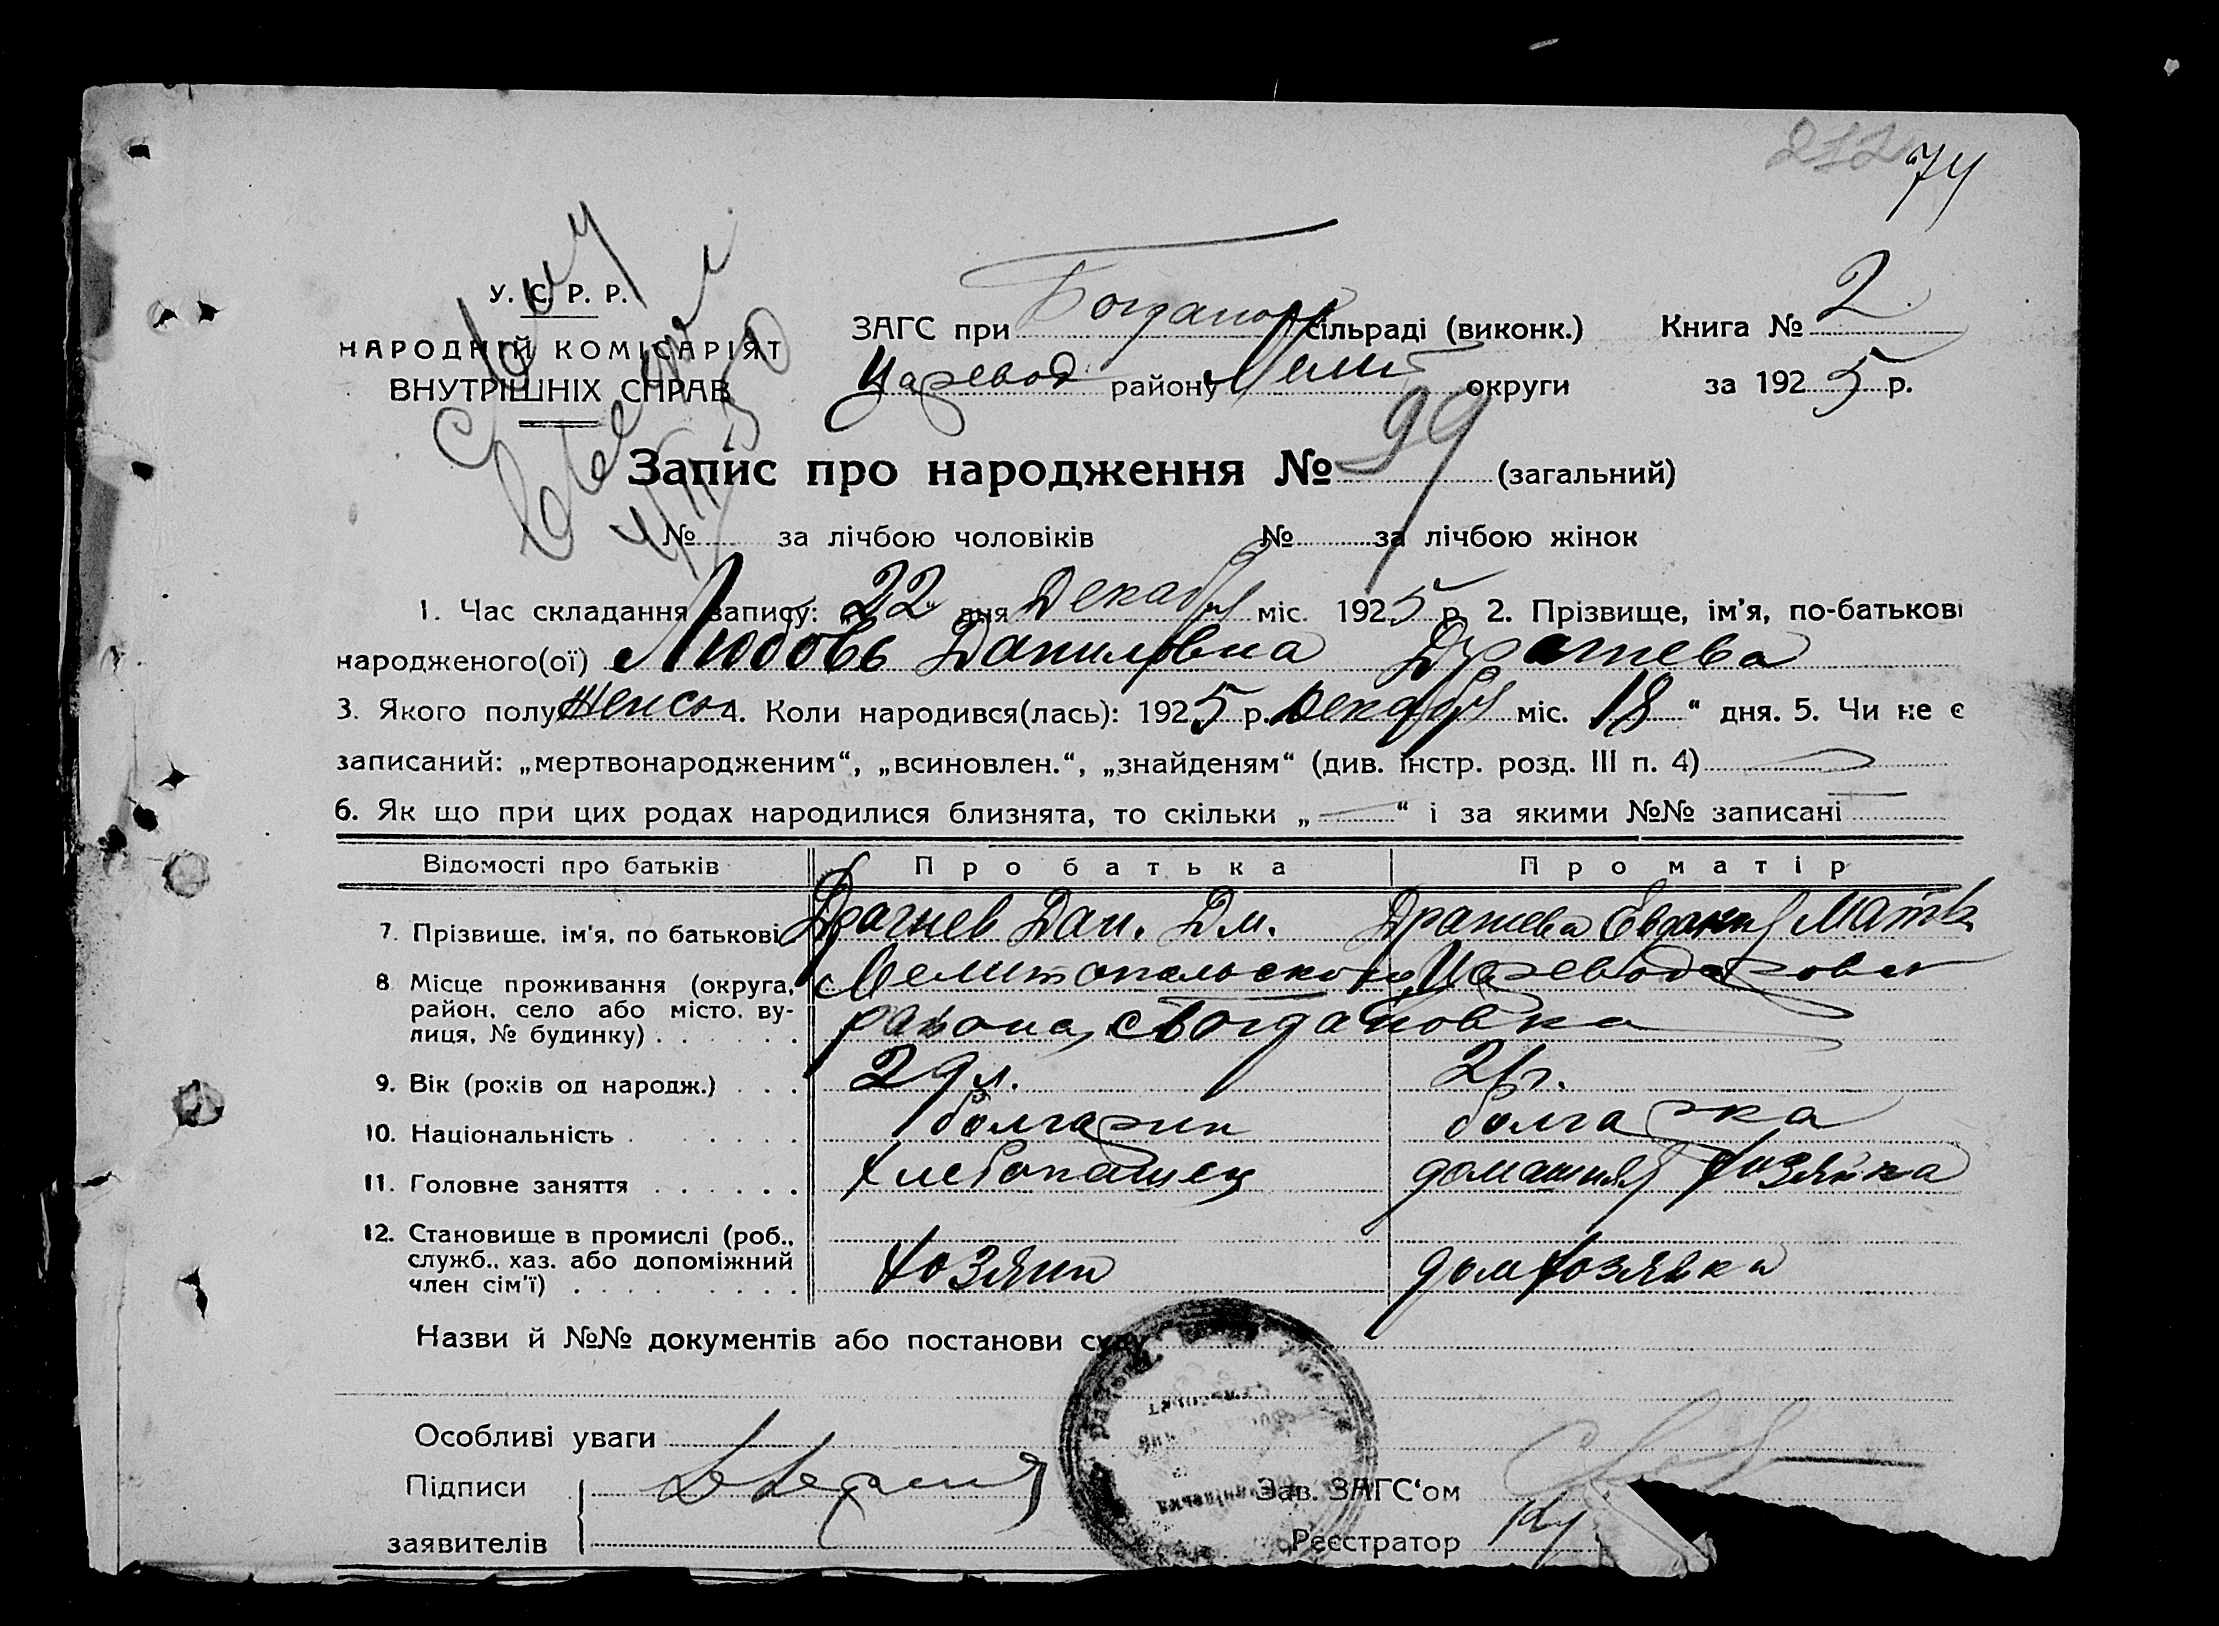 212 74
У. С. Р. Р.
НАРОДНІЙ КОМІСАРІЯТ
ВНУТРІШНІХ СПРАВ
ЗАГС при Богданов сільраді (виконк.) Книга № 2
Царевод району Мелит округи за 1925 р.
Запис про народження № 99 (загальний)
№ за лічбою чоловіків № за лічбою жінок
1. Час складання запису: „22“ дня Декабря міс. 1925 р. 2. Прізвище, ім’я, по-батькові
народженого(ої) Любовь Даниловна Драгнева
3. Якого полу Женск 4. Коли народився(лась): 1925 р. Декабря міс. 18 “ дня. 5. Чи не є
записаний: „мертвонародженим“, „всиновлен.“, „знайденям“ (див. інстр. розд. III п. 4)
6. Як що при цих родах народилися близнята, то скільки „ — “ і за якими №№ записані —
Відомості про батьків Про батька Про матір
7. Прізвище, ім’я, по батькові Драгнев Дан. Дм. Драгнева Матв
8. Місце проживання (округа, Мелитопольского, Царевода
район, село або місто, ву- района, с Богдановка
лиця, № будинку) . . . . . .
9. Вік (років од народж.) . . . 29 л. 21 г.
10. Національність . . . . . . болгарин болгарка
11. Головне заняття . . . . . . хлебопашец домашняя хозяйка
12. Становище в промислі (роб.,
служб., хаз. або допоміжний хозяин домхозяйка
член сім’ї) . . . . . . . . .
Назви й №№ документів або постанови суду
Особливі уваги
Підписи Зав. ЗАГС‘ом
заявителів Реєстратор